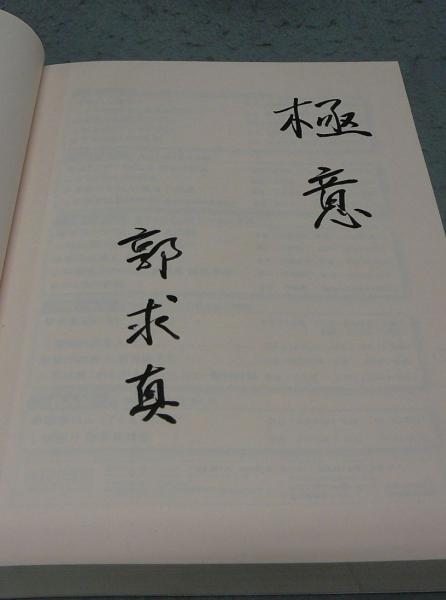 極意
郭求真